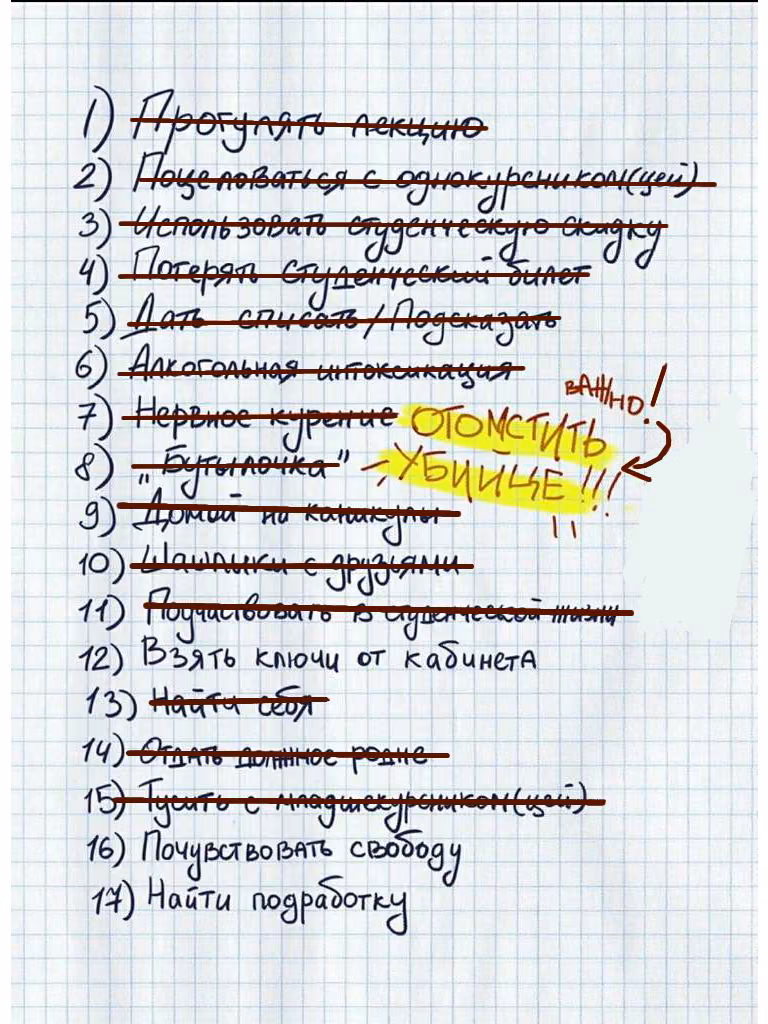 1) Прогулять лекцию
2) Поцеловаться с однокурсником(цей)
3) Использовать студенческую скидку
4) Потерять студенческий билет
5) Дать списать / Подсказать
6) Алкогольная интоксикация
ВАЖНО!
7) Нервное курение ОТОМСТИТЬ
8) „Бутылочка" УБИЙЦЕ!!!
9) Домой на каникулы
10) Шашлыки с друзьями
11) Поучаствовать в студенческой жизни
12) Взять ключи от кабинета
13) Найти себя
14) Отдать должное родне
15) Тусить с младшекурсником(цей)
16) Почувствовать свободу
17) Найти подработку